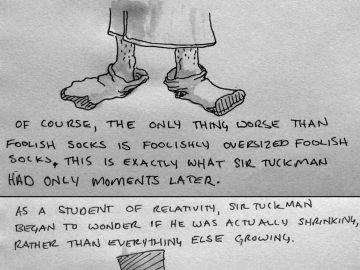 OF COURSE, THE ONLY THING WORSE THAN
FOOLISH SOCKS IS FOOLISHLY OVERSIZED FOOLISH
SOCKS, THIS IS EXACTLY WHAT SIR TUCKMAN
HAD ONLY MOMENTS LATER.
AS A STUDENT OF RELATIVITY, SIR TUCKMAN
BEGAN TO WONDER IF HE WAS ACTUALLY SHRINKING,
RATHER THAN EVERYTHING ELSE GROWING.